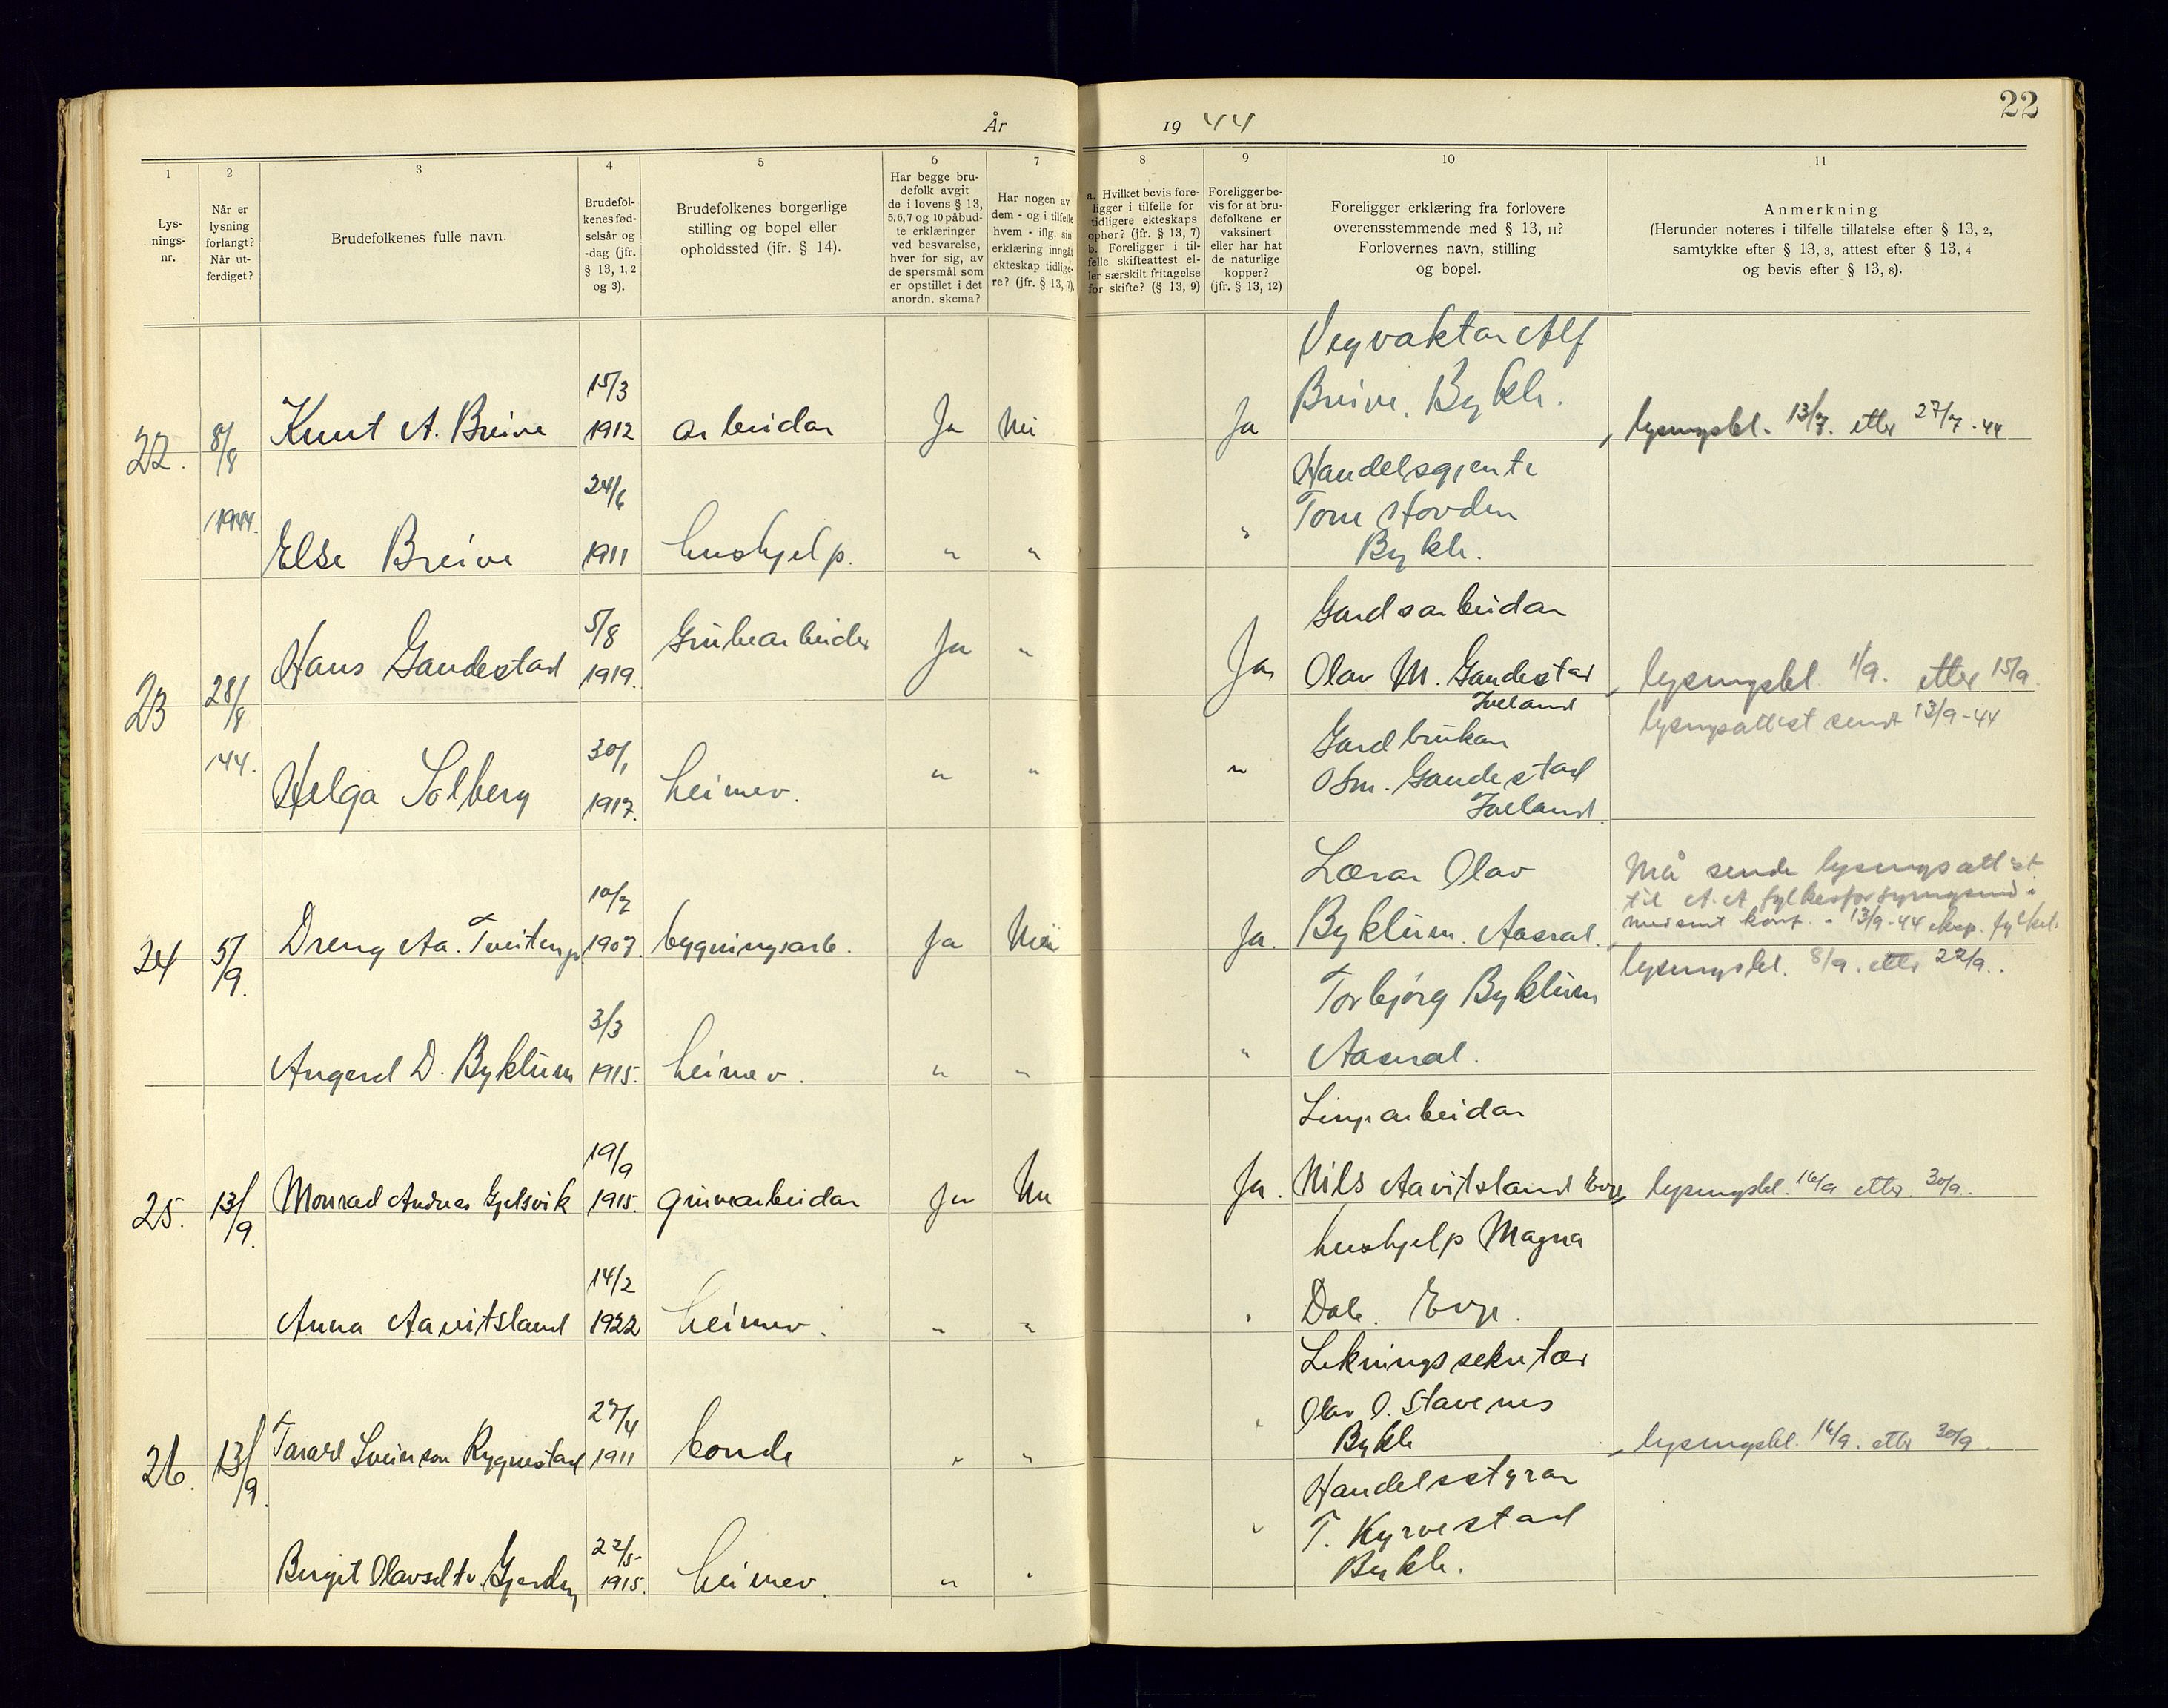 År 19 44
22
1
2
3
4
5
6
7
8
9
10
11
Lys-
nings-
nr.
Når er
lysning
forlangt?
Når ut-
ferdiget?
Brudefolkenes fulle navn.
Brudefol-
kenes fød-
selsår og
-dag (jfr.
§ 13, 1, 2
og 3).
Brudefolkenes borgerlige
stilling og bopel eller
opholdssted (jfr. § 14).
Har begge bru-
defolk avgit
de i lovens § 13,
5,6,7 og 10 påbud-
te erklæringer
ved besvarelse,
hver for sig, av
de spørsmål som
er opstillet i det
anordn. skema?
Har nogen av
dem - og i tilfelle
hvem - iflg. sin
erklæring inngåt
ekteskap tidlige-
re? (jfr. § 13, 7).
a. Hvilket bevis fore-
ligger i tilfelle for
tidligere ekteskaps
ophør? (jfr. § 13, 7)
b. Foreligger i til-
felle skifteattest el-
ler særskilt fritagelse
for skifte? (§ 13, 9)
Foreligger be-
vis for at bru-
defolkene er
vaksinert
eller har hat
de naturlige
kopper?
(jfr. § 13, 12)
Foreligger erklæring fra forlovere
overensstemmende med § 13, 11?
Forlovernes navn, stilling
og bopel.
Anmerkning
(Herunder noteres i tilfelle tillatelse efter § 13, 2,
samtykke efter § 13, 3, attest efter § 13, 4
og bevis efter § 13, 8).
22. 8/8 1944.
Knut A. Breive 15/3 1912 arbeidar Ja Nei Ja
Vegvaktar Alf
Breive. Bykle.
lysingsbl. 13/7. etter 27/7-44
Else Breive 24/6 1911 hushjelp. " " "
Handelsgjente
Tone Hovden
Bykle.
23 28/8 '44.
Hans Gaudestad 5/8 1919. Grubearbeider Ja " Ja
Gardsarbeidar
Olav M. Gaudestad
Iveland
lysingsbl. 1/9. etter 15/9.
lysingsattest sendt 13/9-44
Helga Solberg 30/1 1917. heimev. " " "
Gardbrukar
Osm. Gaudestad
Iveland.
24 5/9.
Dreng Aa. Tveitengr. 10/7 1907. bygningsarb. Ja Nei Ja.
Lærar Olav
Byklum. Aaseral.
Må sende lysingsattest
til A. A. fylkesforsyningsnd i
13/9-44 eksp.
lysingsbl. 8/9. etter 22/9.
Angerd D. Byklum 3/3 1915. heimev. " " "
Torbjörg Byklum
Aaseral.
25. 13/9.
Monrad Andreas Gjelsvik 19/9 1915. gruvearbeidar Ja Nei Ja.
Linjearbeidar
Nils Aavitsland Evje
lysingsbl. 16/9 etter 30/9.
Anna Aavitsland 14/2 1922 heimev. " " "
hushjelp Magna
Dale. Evje.
26. 13/9.
Tarald Sveinson Rygnestad 27/4 1911 bonde " " "
Likningssekretær
Olav O. Stavenes
Bykle
lysingsbl. 16/9. etter 30/9.
Birgit Olavsdtr. Gjerden 22/5 1915. heimev. " " "
Handelsstyrar
T. Kyrvestad
Bykle.